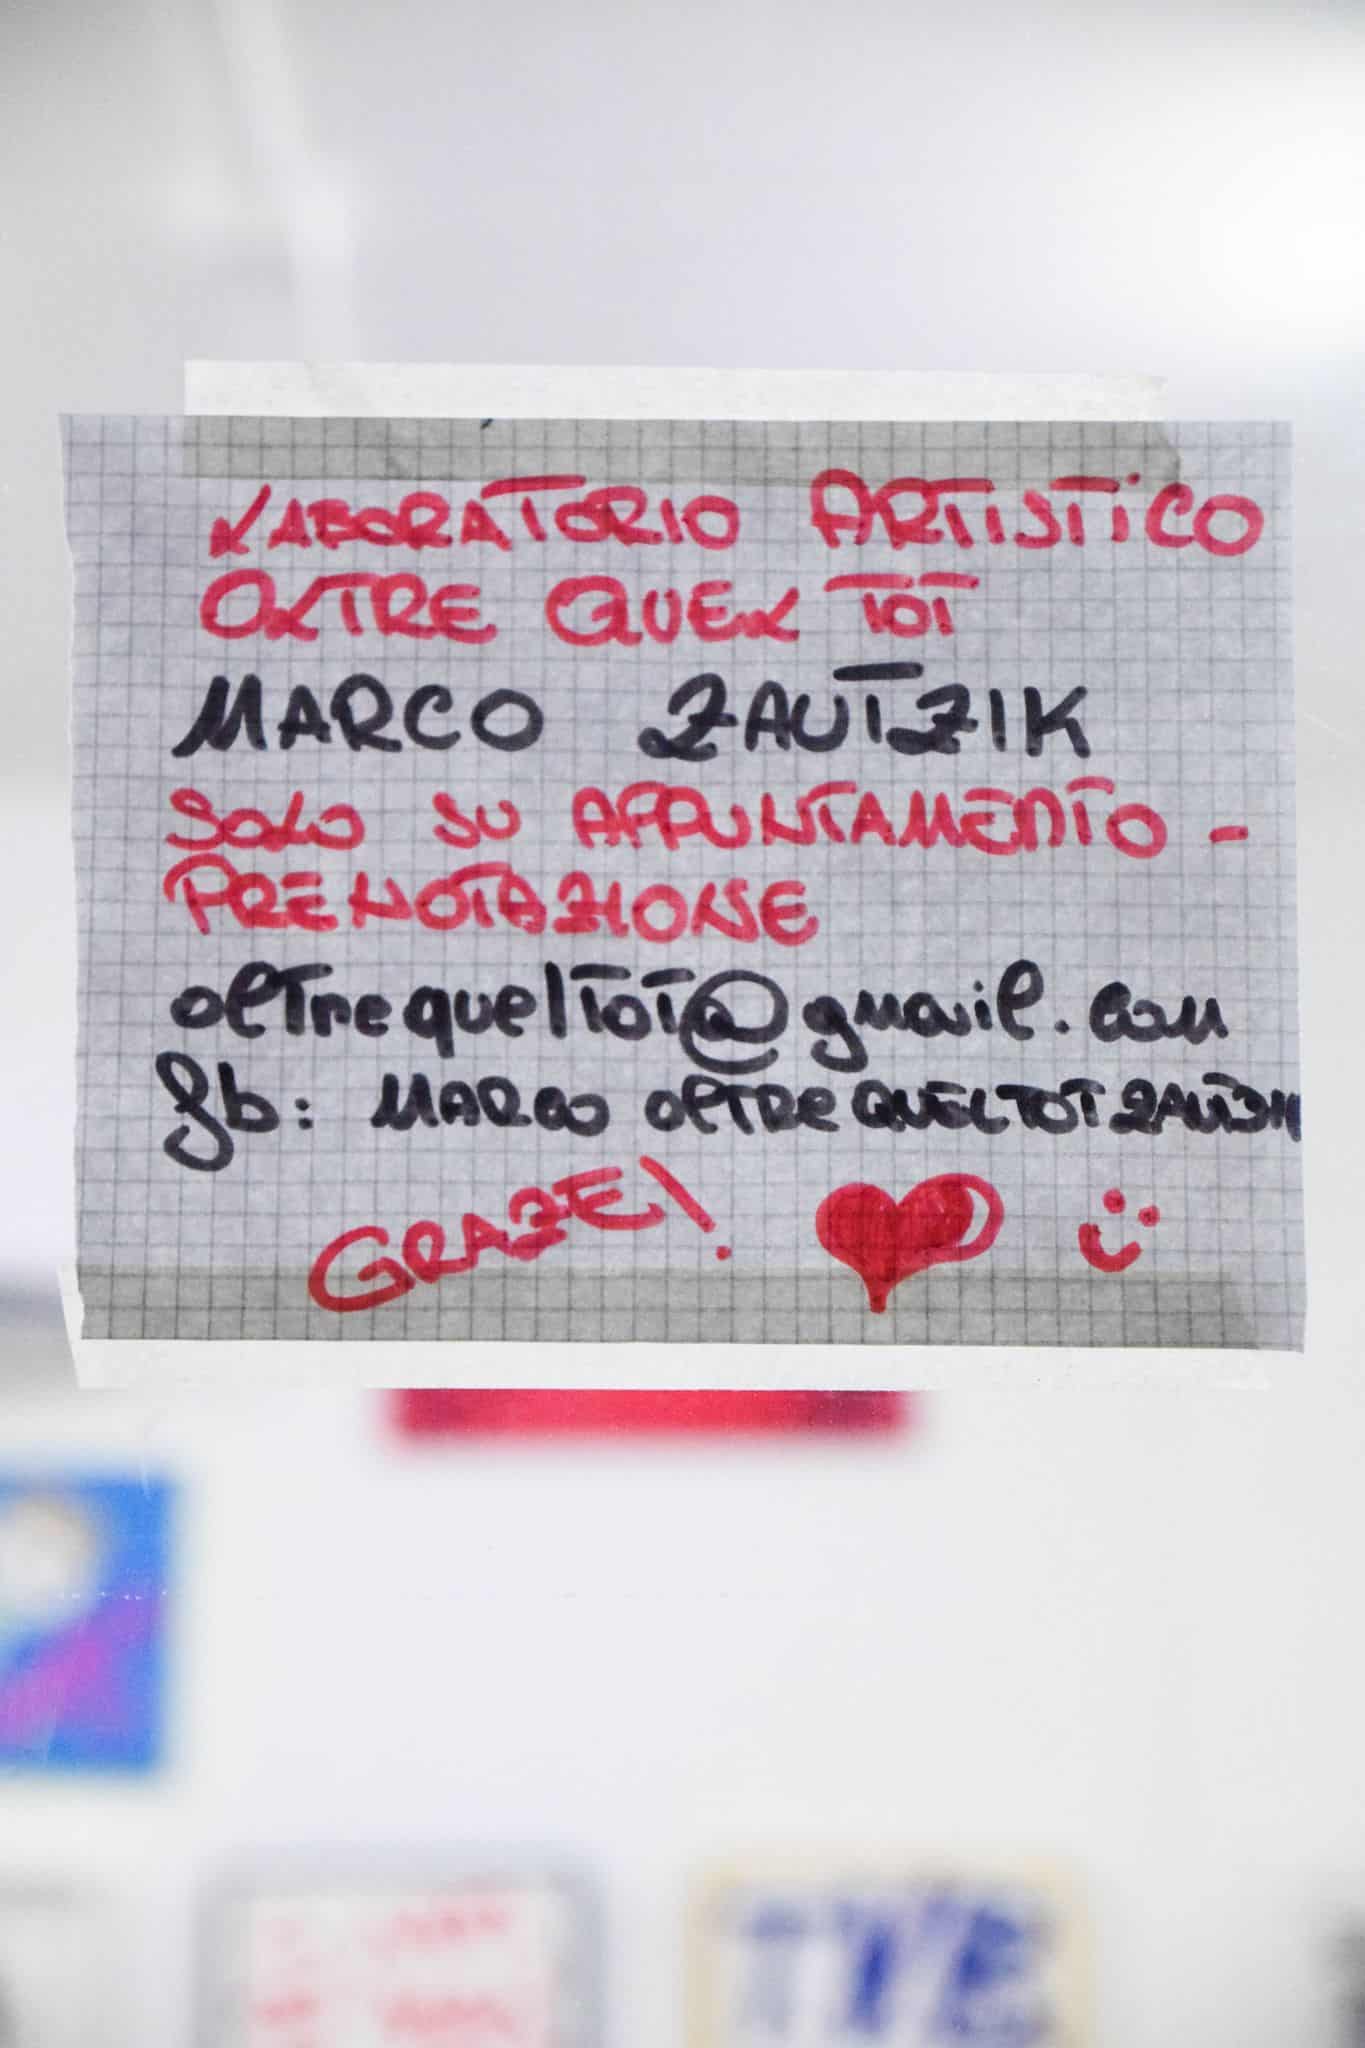 LABORATORIO ARTISTICO
OLTRE QUEL TOT
MARCO ZAUTZIK
SOLO SU APPUNTAMENTO -
PRENOTAZIONE
oltrequeltot@gmail.com
fb: MARCO OLTRE QUELTOT
GRAZE!